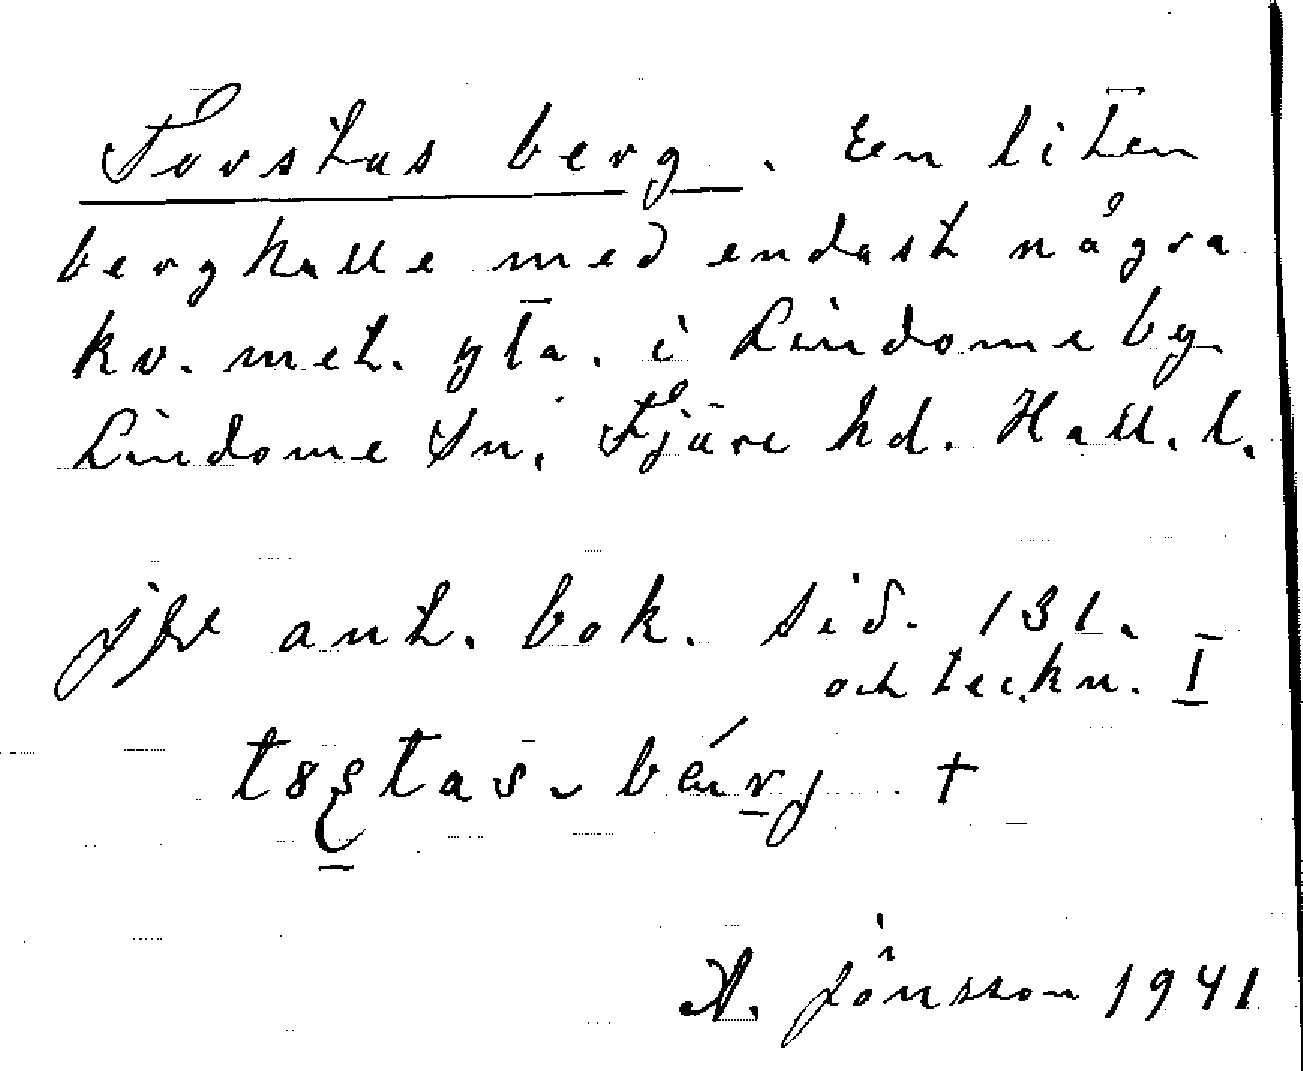 Torstas berg. En liten
bergkulle med endast några
kv. met. yta. i Lindome by
Lindome Sn. Fjäre hd. Hall. l.
jfr ant. bok. sid. 131.
och teckn. I
A. Jönsson 1941